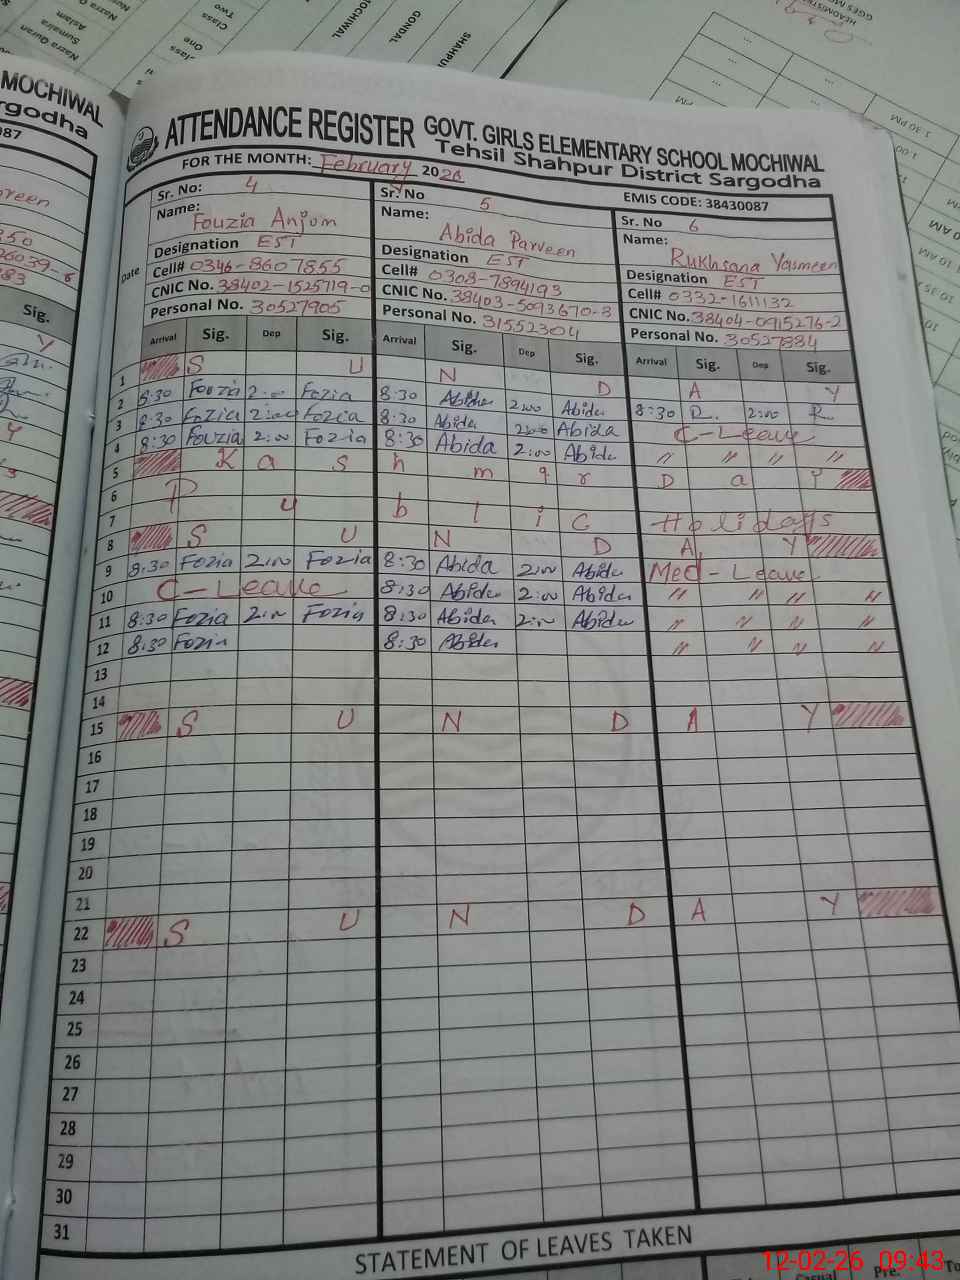 ATTENDANCE REGISTER GOVT. GIRLS ELEMENTARY SCHOOL MOCHIWAL
Tehsil Shahpur District Sargodha
FOR THE MONTH: February 2026
EMIS CODE: 38430087
Sr. No: 4
Name: Fouzia Anjum
Designation EST
Cell# 0346-8607855
CNIC No. 38402-1525719-0
Personal No. 30527905
Sr. No 5
Name: Abida Parveen
Designation EST
Cell# 0308-7894193
CNIC No. 38403-5093670-8
Personal No. 31552304
Sr. No 6
Name: Rukhsana Yasmeen
Designation EST
Cell# 0332-1611132
CNIC No. 38404-0915276-2
Personal No. 30527884
Date Arrival Sig. Dep Sig. Arrival Sig. Dep Sig. Arrival Sig. Dep Sig.
1 S U N D A Y
2 8:30 Fouzia 2:00 Fozia 8:30 Abida 2:00 Abida 8:30 R. 2:00 R
3 8:30 Fozia 2:00 Fozia 8:30 Abida 2:00 Abida C-Leave
4 8:30 Fouzia 2:00 Fozia 8:30 Abida 2:00 Abida " " " "
5 K a s h m i r D a Y
6 P u b l i C Holidays
7
8 S U N D A Y
9 8:30 Fozia 2:00 Fozia 8:30 Abida 2:00 Abida Med-Leave
10 C-Leave 8:30 Abida 2:00 Abida " " " "
11 8:30 Fozia 2:00 Fozia 8:30 Abida 2:00 Abida " " " "
12 8:30 Fozia 8:30 Abida " " " "
13
14
15 S U N D A Y
16
17
18
19
20
21
22 S U N D A Y
23
24
25
26
27
28
29
30
31
STATEMENT OF LEAVES TAKEN
Casual Pre.
12-02-26 09:43
MOCHIWAL
Sargodha
Sig.
MOCHIWAL
GONDAL
SHAHPUR
Class
Two
One
Nazra Quran